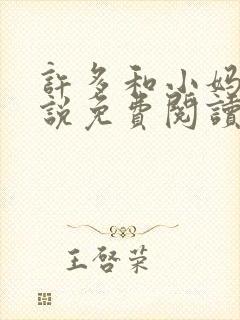 許多和小妈
說免費閱讀
王啓荣